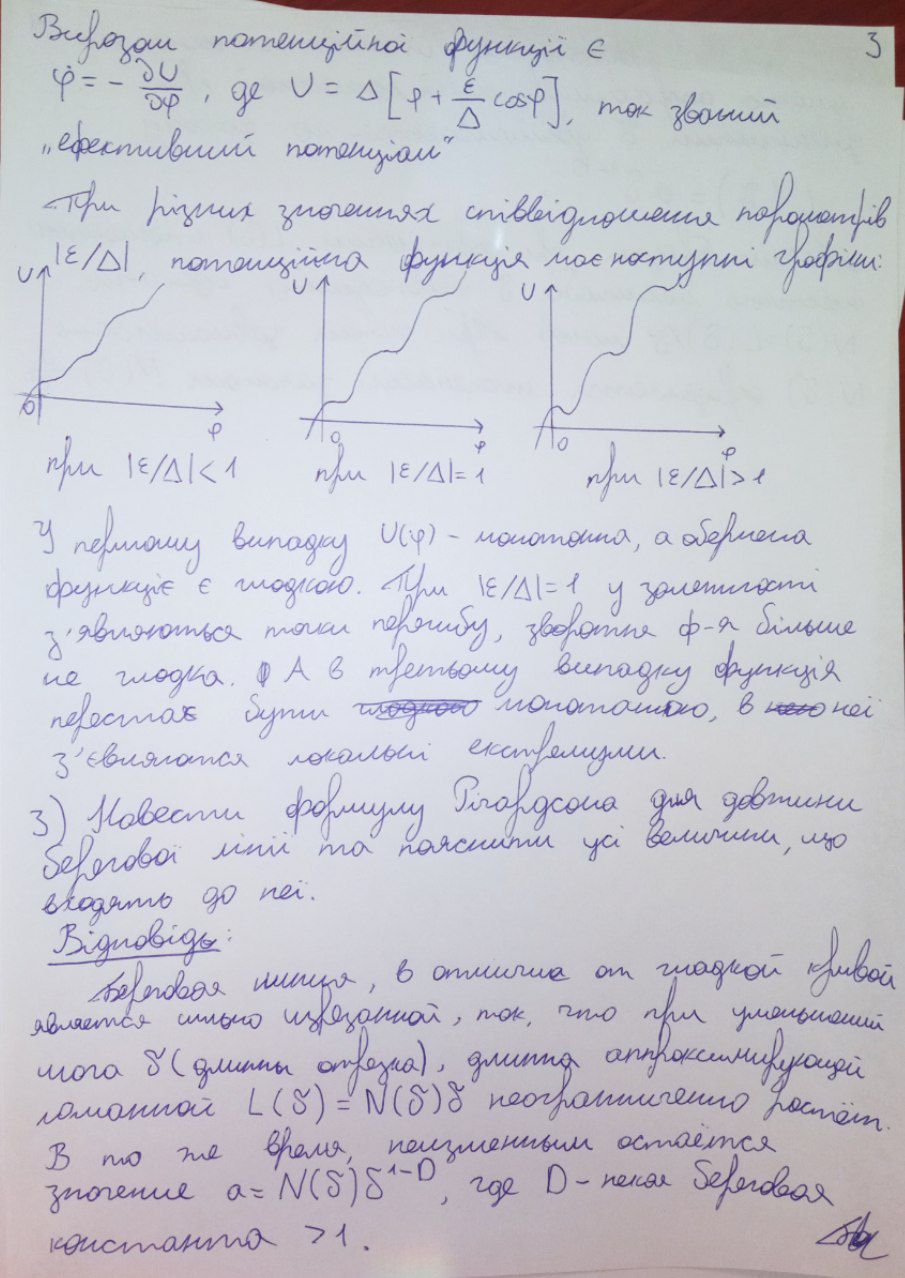 Виразом потенційної функції є
3
φ̇ = - ∂U/∂φ, де U = Δ[φ + ε/Δ cosφ], так званий
„ефективний потенціал“
При різних значеннях співвідношення параметрів
|ε/Δ|, потенційна функція має наступні графіки:
U U U
0 φ 0 φ 0 φ
при |ε/Δ| < 1 при |ε/Δ| = 1 при |ε/Δ| > 1
У першому випадку U(φ) - монотонна, а обернена
функціє є гладкою. При |ε/Δ| = 1 у залежності
з'являються точки перегибу, зворотня ф-я більше
не гладка. А в третьому випадку функція
перестає бути гладкою монотонною, в неї
з'являются локальні екстремуми.
3) Навести формулу Річардсона для довжини
берегової лінії та пояснити усі величини, що
входять до неї.
Відповідь:
Береговая линия, в отличиа от гладкой кривой
является сильно изрезанной, так, что при уменьшений
шага δ (длинны отрезка), длинна аппроксимирующей
ломанной L(δ) = N(δ)δ неограниченно растёт.
В то же время, неизменным остаётся
значение a = N(δ)δ^1-D, где D - некая береговая
константа > 1.